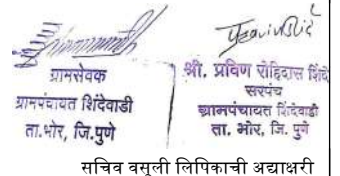 ग्रामसेवक
ग्रामपंचायत शिंदेवाडी
ता.भोर, जि.पुणे
श्री. प्रविण रोहिदास शिंदे
सरपंच
ग्रामपंचायत शिंदेवाडी
ता. भोर, जि. पुणे
सचिव वसूली लिपिकाची अद्याक्षरी